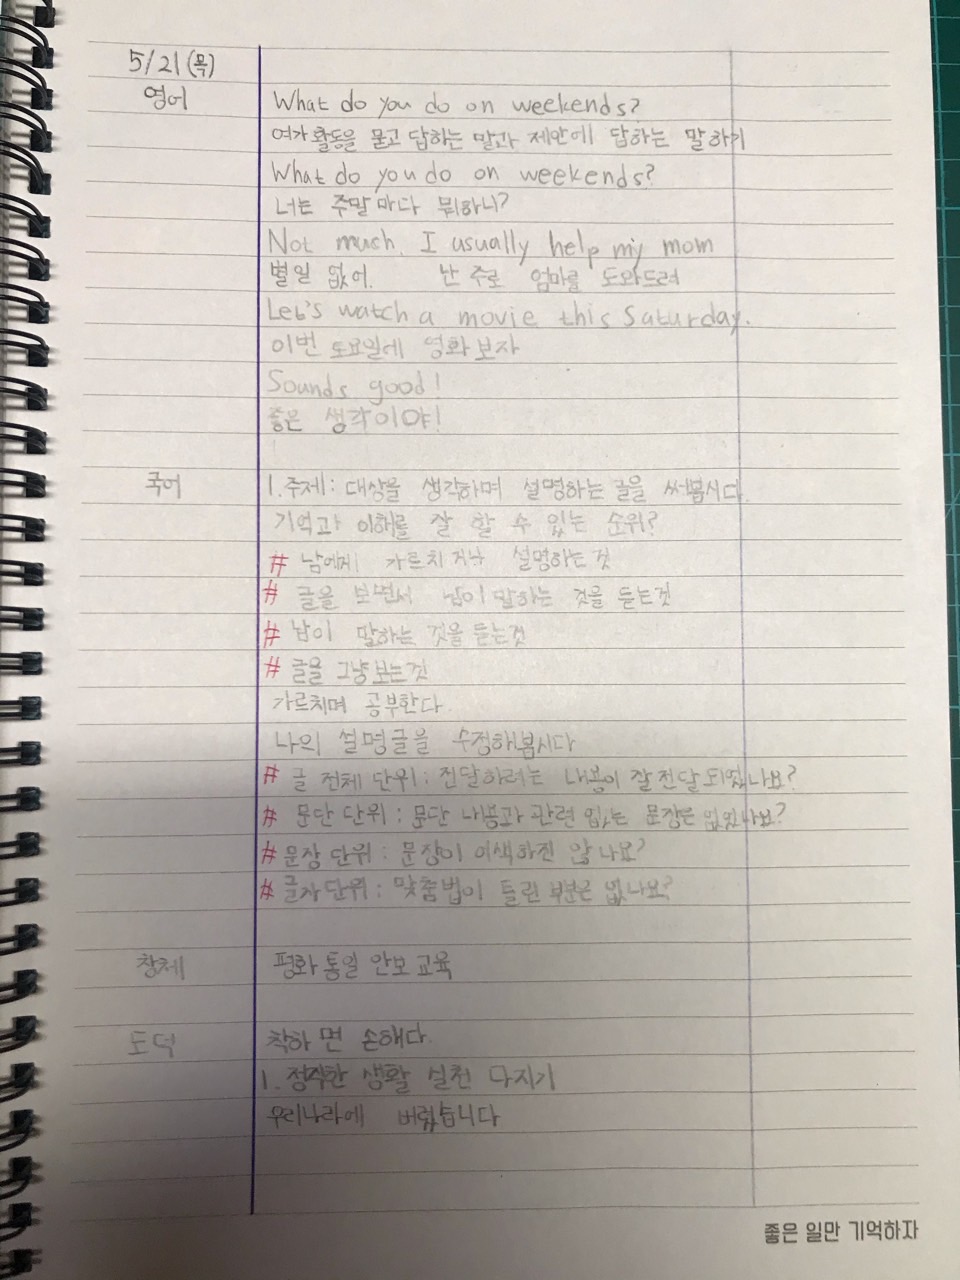 5/21(목)
영어 What do you do on weekends?
여가 활동을 묻고 답하는 말과 제안에 답하는 말 하기
What do you do on weekends?
너는 주말마다 뭐하니?
Not much. I usually help my mom
별일 없어. 난 주로 엄마를 도와드려
Let's watch a movie this Saturday.
이번 토요일에 영화보자
Sounds good!
좋은 생각이야!
국어 1.주제: 대상을 생각하며 설명하는 글을 써봅시다.
기억과 이해를 잘 할 수 있는 순위?
# 남에게 가르치거나 설명하는것
# 글을 보면서 남이 말하는 것을 듣는것
# 남이 말하는 것을 듣는것
# 글을 그냥 보는것
가르치며 공부한다.
나의 설명글을 수정해봅시다
# 글 전체 단위 : 전달하려는 내용이 잘 전달 되었나요?
# 문단 단위 : 문단 내용과 관련 없는 문장은 없었나요?
# 문장 단위 : 문장이 어색하진 않나요?
# 글자 단위 : 맞춤법이 틀린 부분은 없나요?
창체 평화 통일 안보 교육
도덕 착하면 손해다.
1. 정직한 생활 실천 다지기
우리나라에 습니다
좋은 일만 기억하자